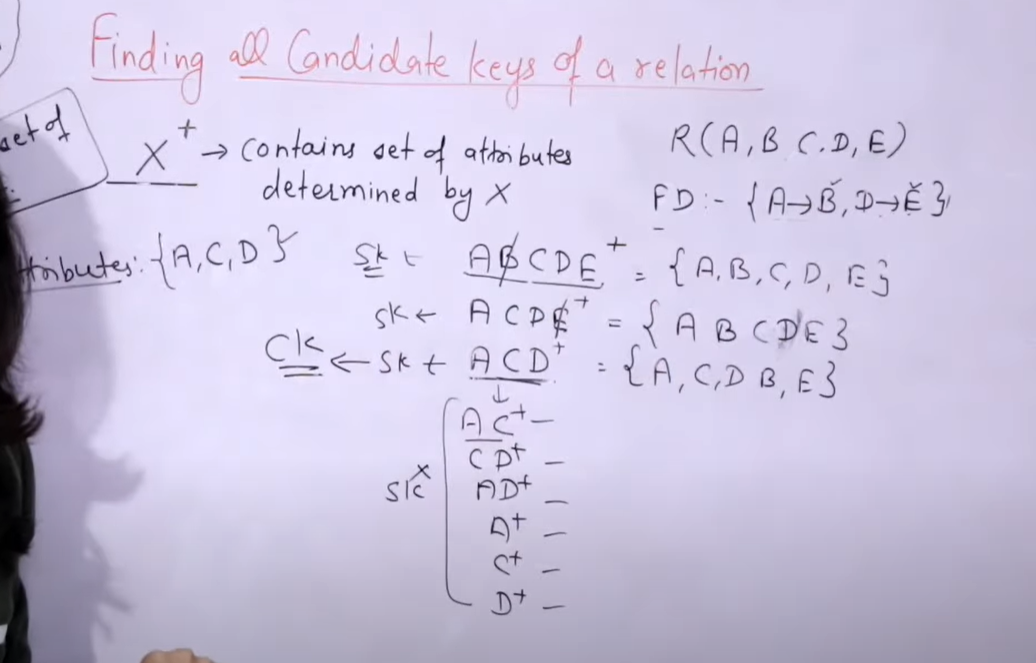 Finding all Candidate keys of a relation
set of
X⁺ → contains set of attributes
determined by X
R(A, B C. D, E)
FD :- {A→B, D→E}
tributes: {A, C, D}
Sk ← ABCDE⁺ = {A, B, C, D, E}
SK ← ACDE⁺ = {A B C D E}
CK ← SK ← ACD⁺ = {A, C, D B, E}
↓
AC⁺ –
CD⁺ –
SK x AD⁺ –
A⁺ –
C⁺ –
D⁺ –